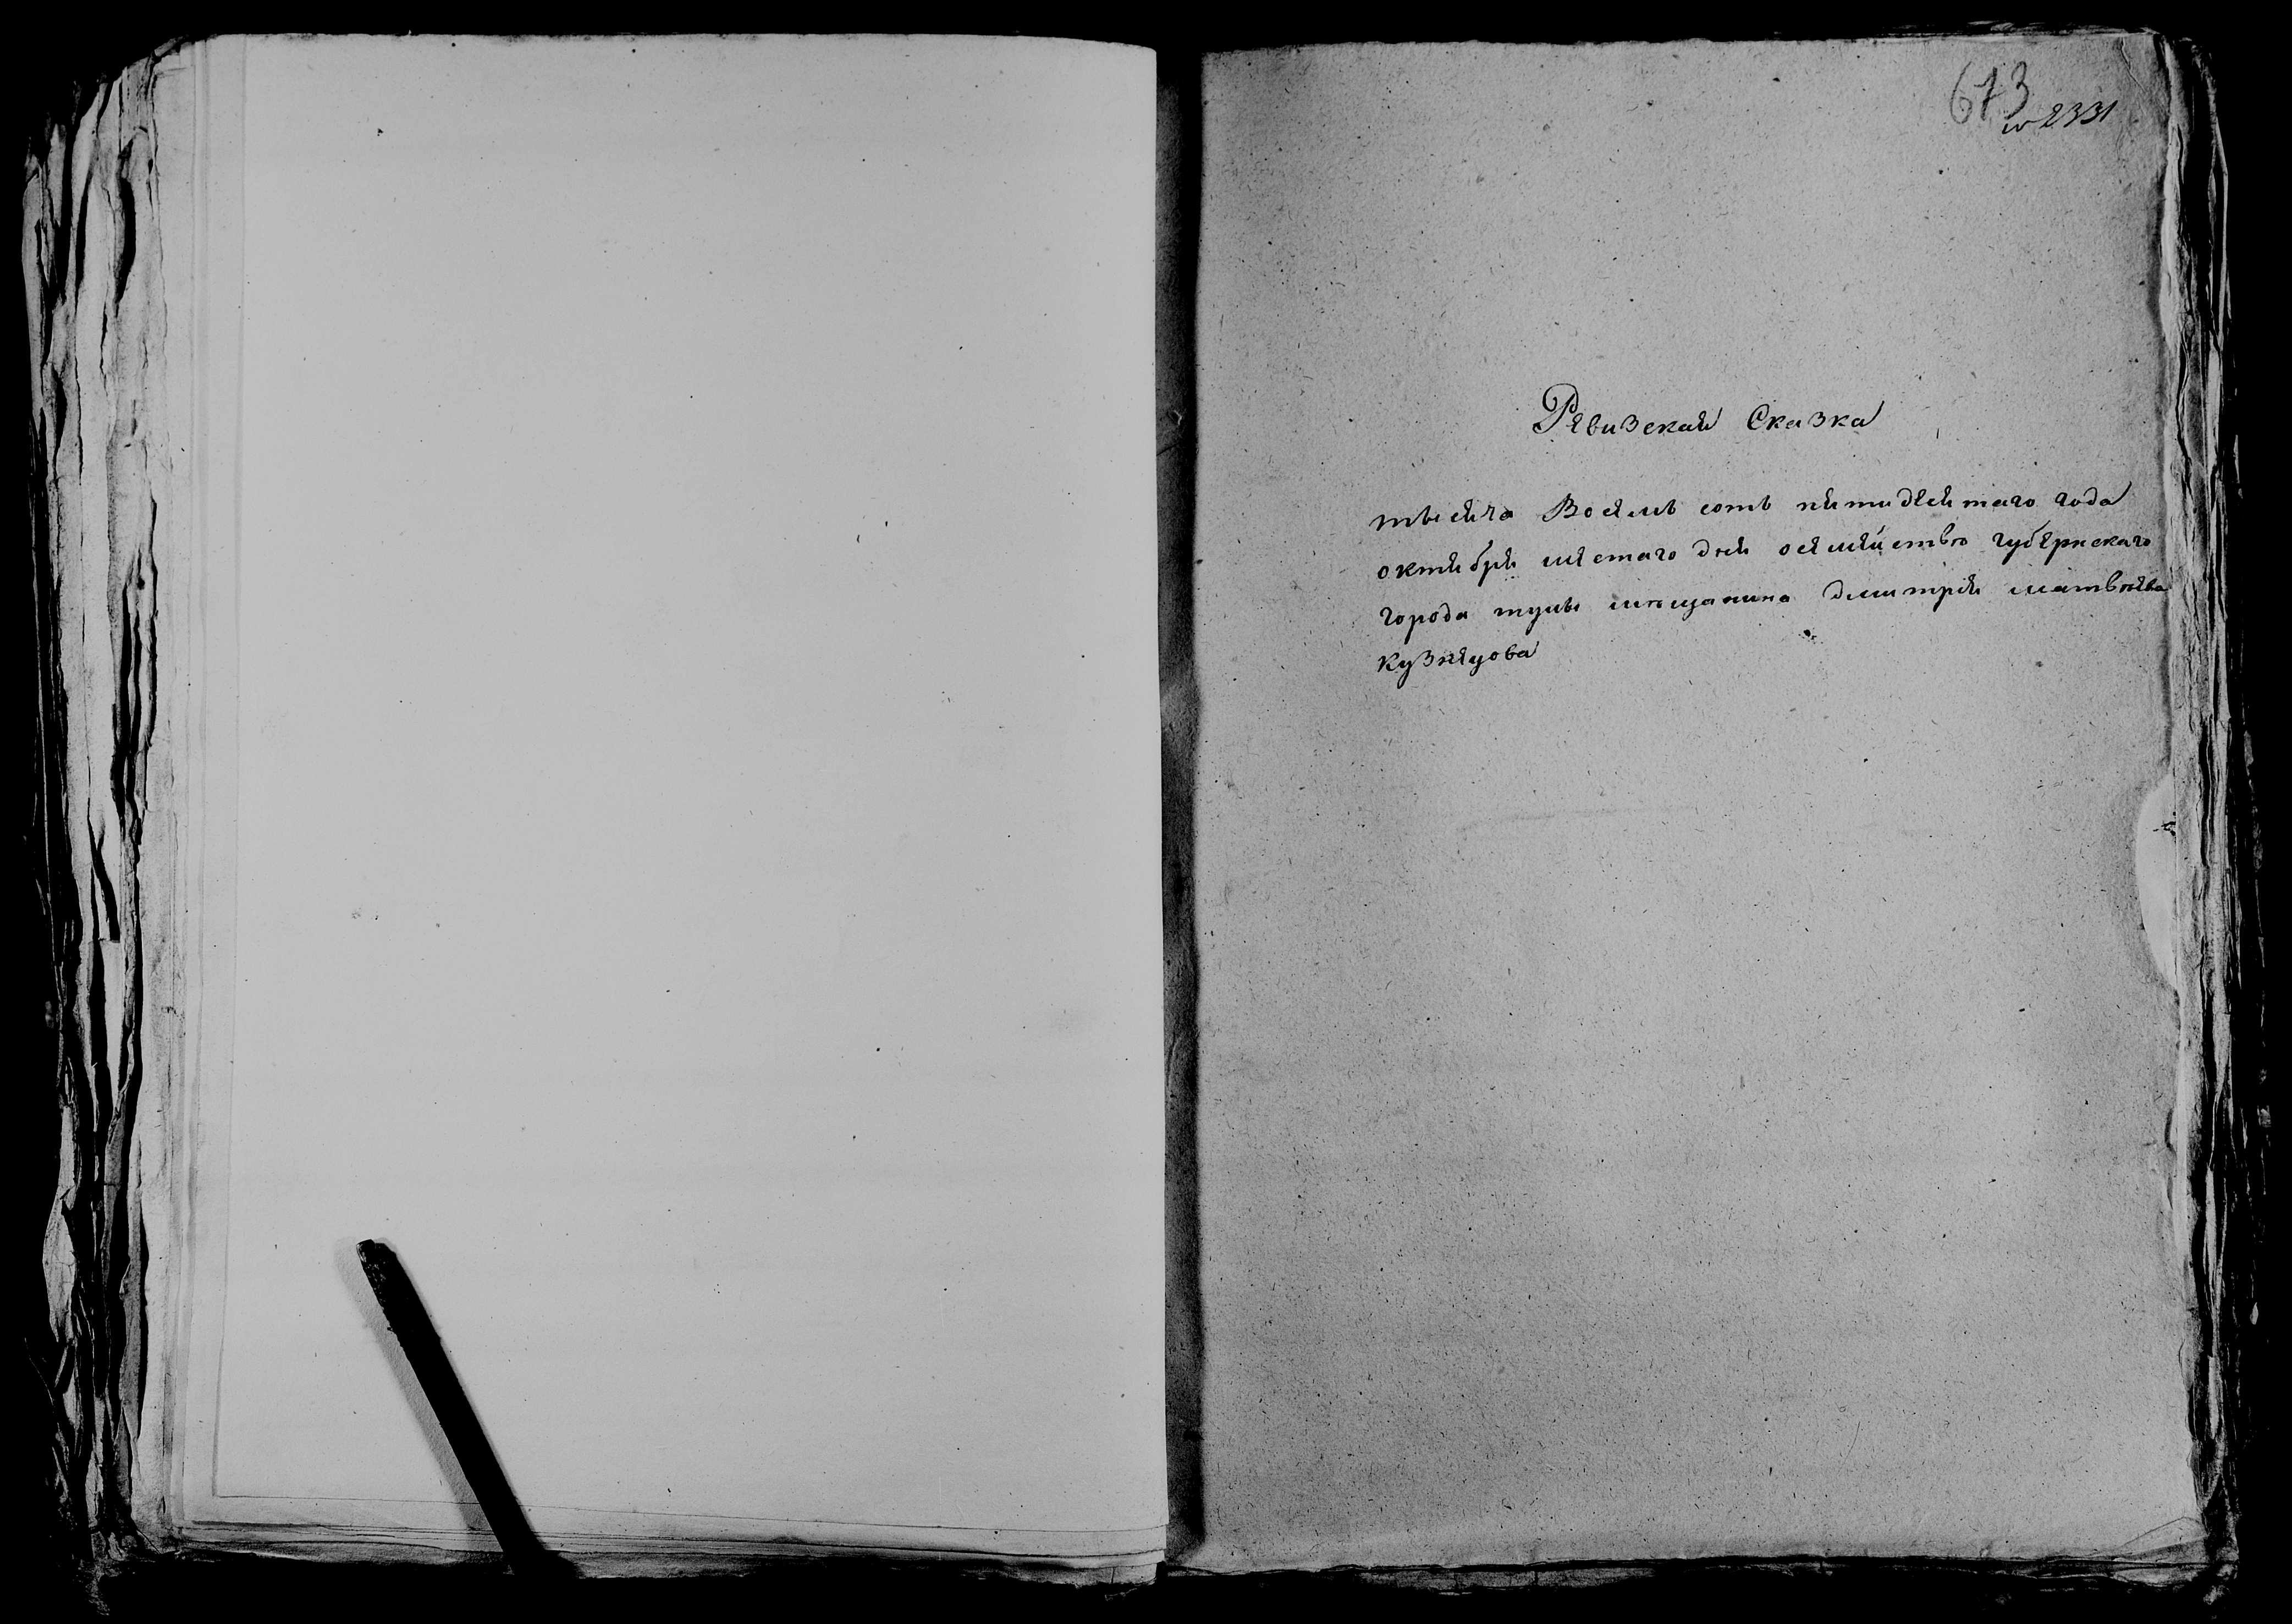 673
№ 2331
Ревизская Сказка
тысяча Восемь сотъ пятидесятаго года
октября шестаго дня осемействѣ губернскаго
города тулы мѣщанина дмитрея матвѣева
кузнецова